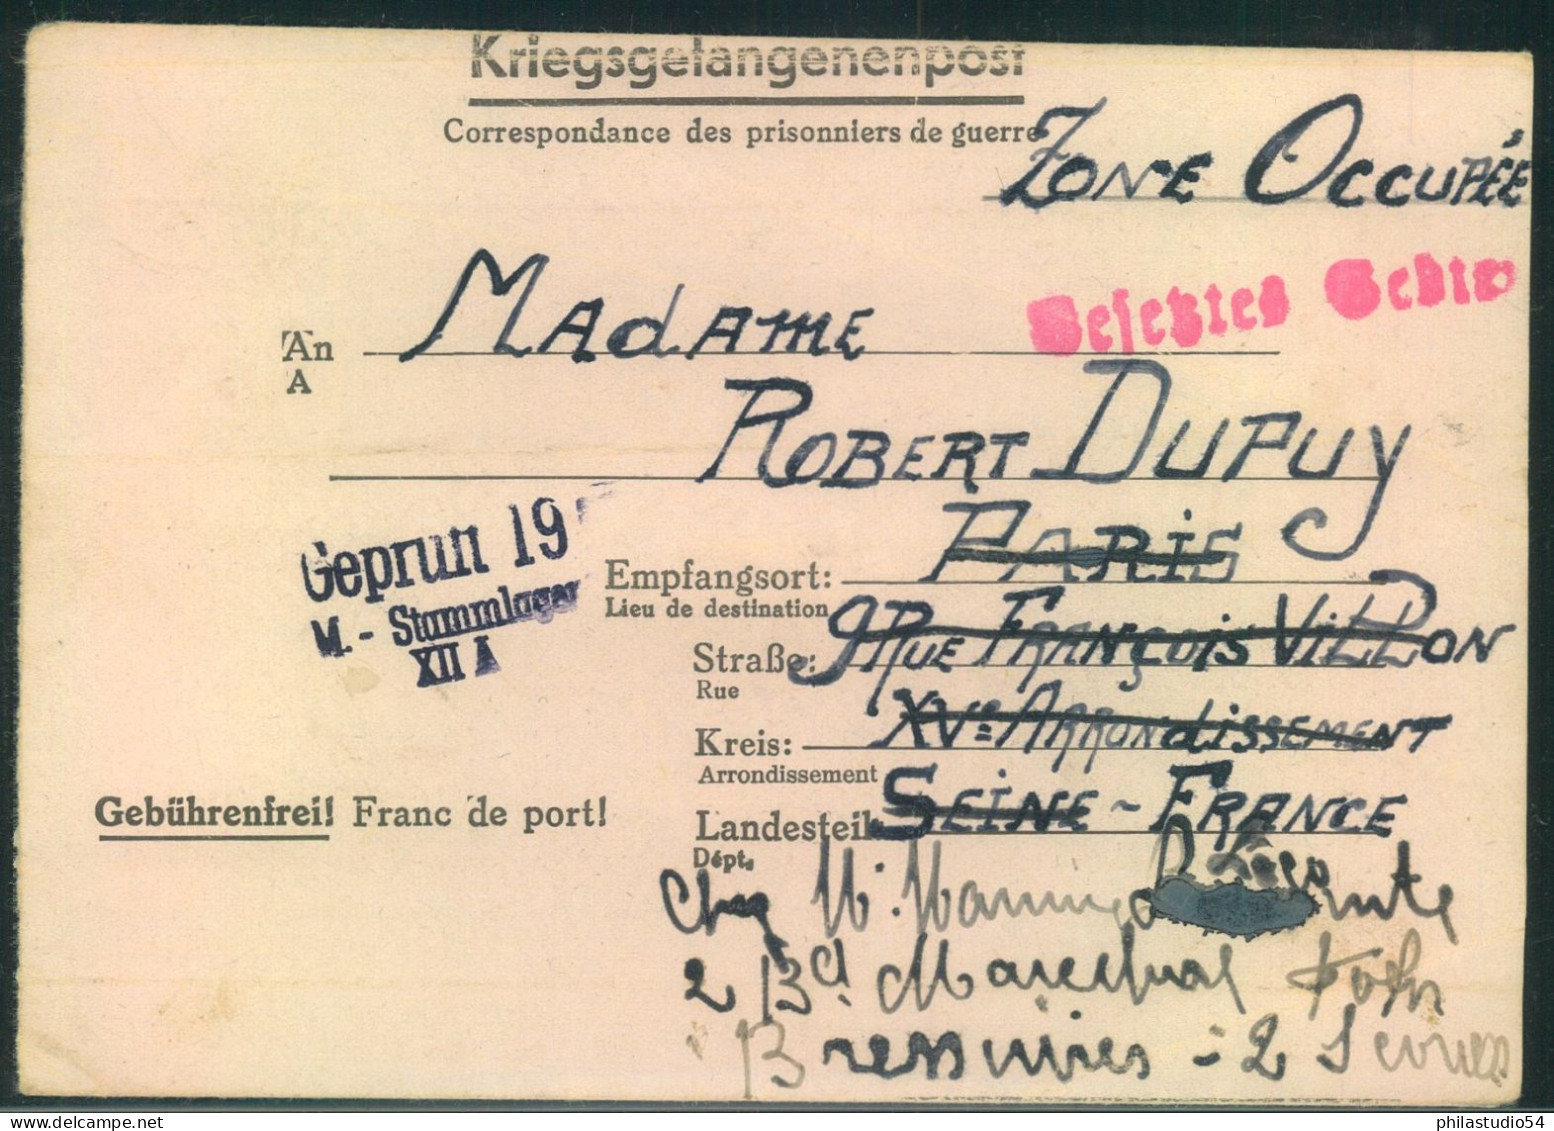 Kriegsgefangenenpost
Correspondance des prisonniers de guerre
ZONE OCCUPÉE
Besetztes Gebiet
An MADAME
A
ROBERT DUPUY
Geprüft 19
M. - Stammlager
XII A
Empfangsort: PARIS
Lieu de destination
Straße: 9 RUE FRANÇOIS VILLON
Rue
Kreis: XVe ARRONDISSEMENT
Arrondissement
Gebührenfrei! Franc de port!
Landesteil: SEINE - FRANCE
Dépt.
Chez Mr
2 Bd Marechal Foch
Bressuires - 2 Sevres
philastudio54